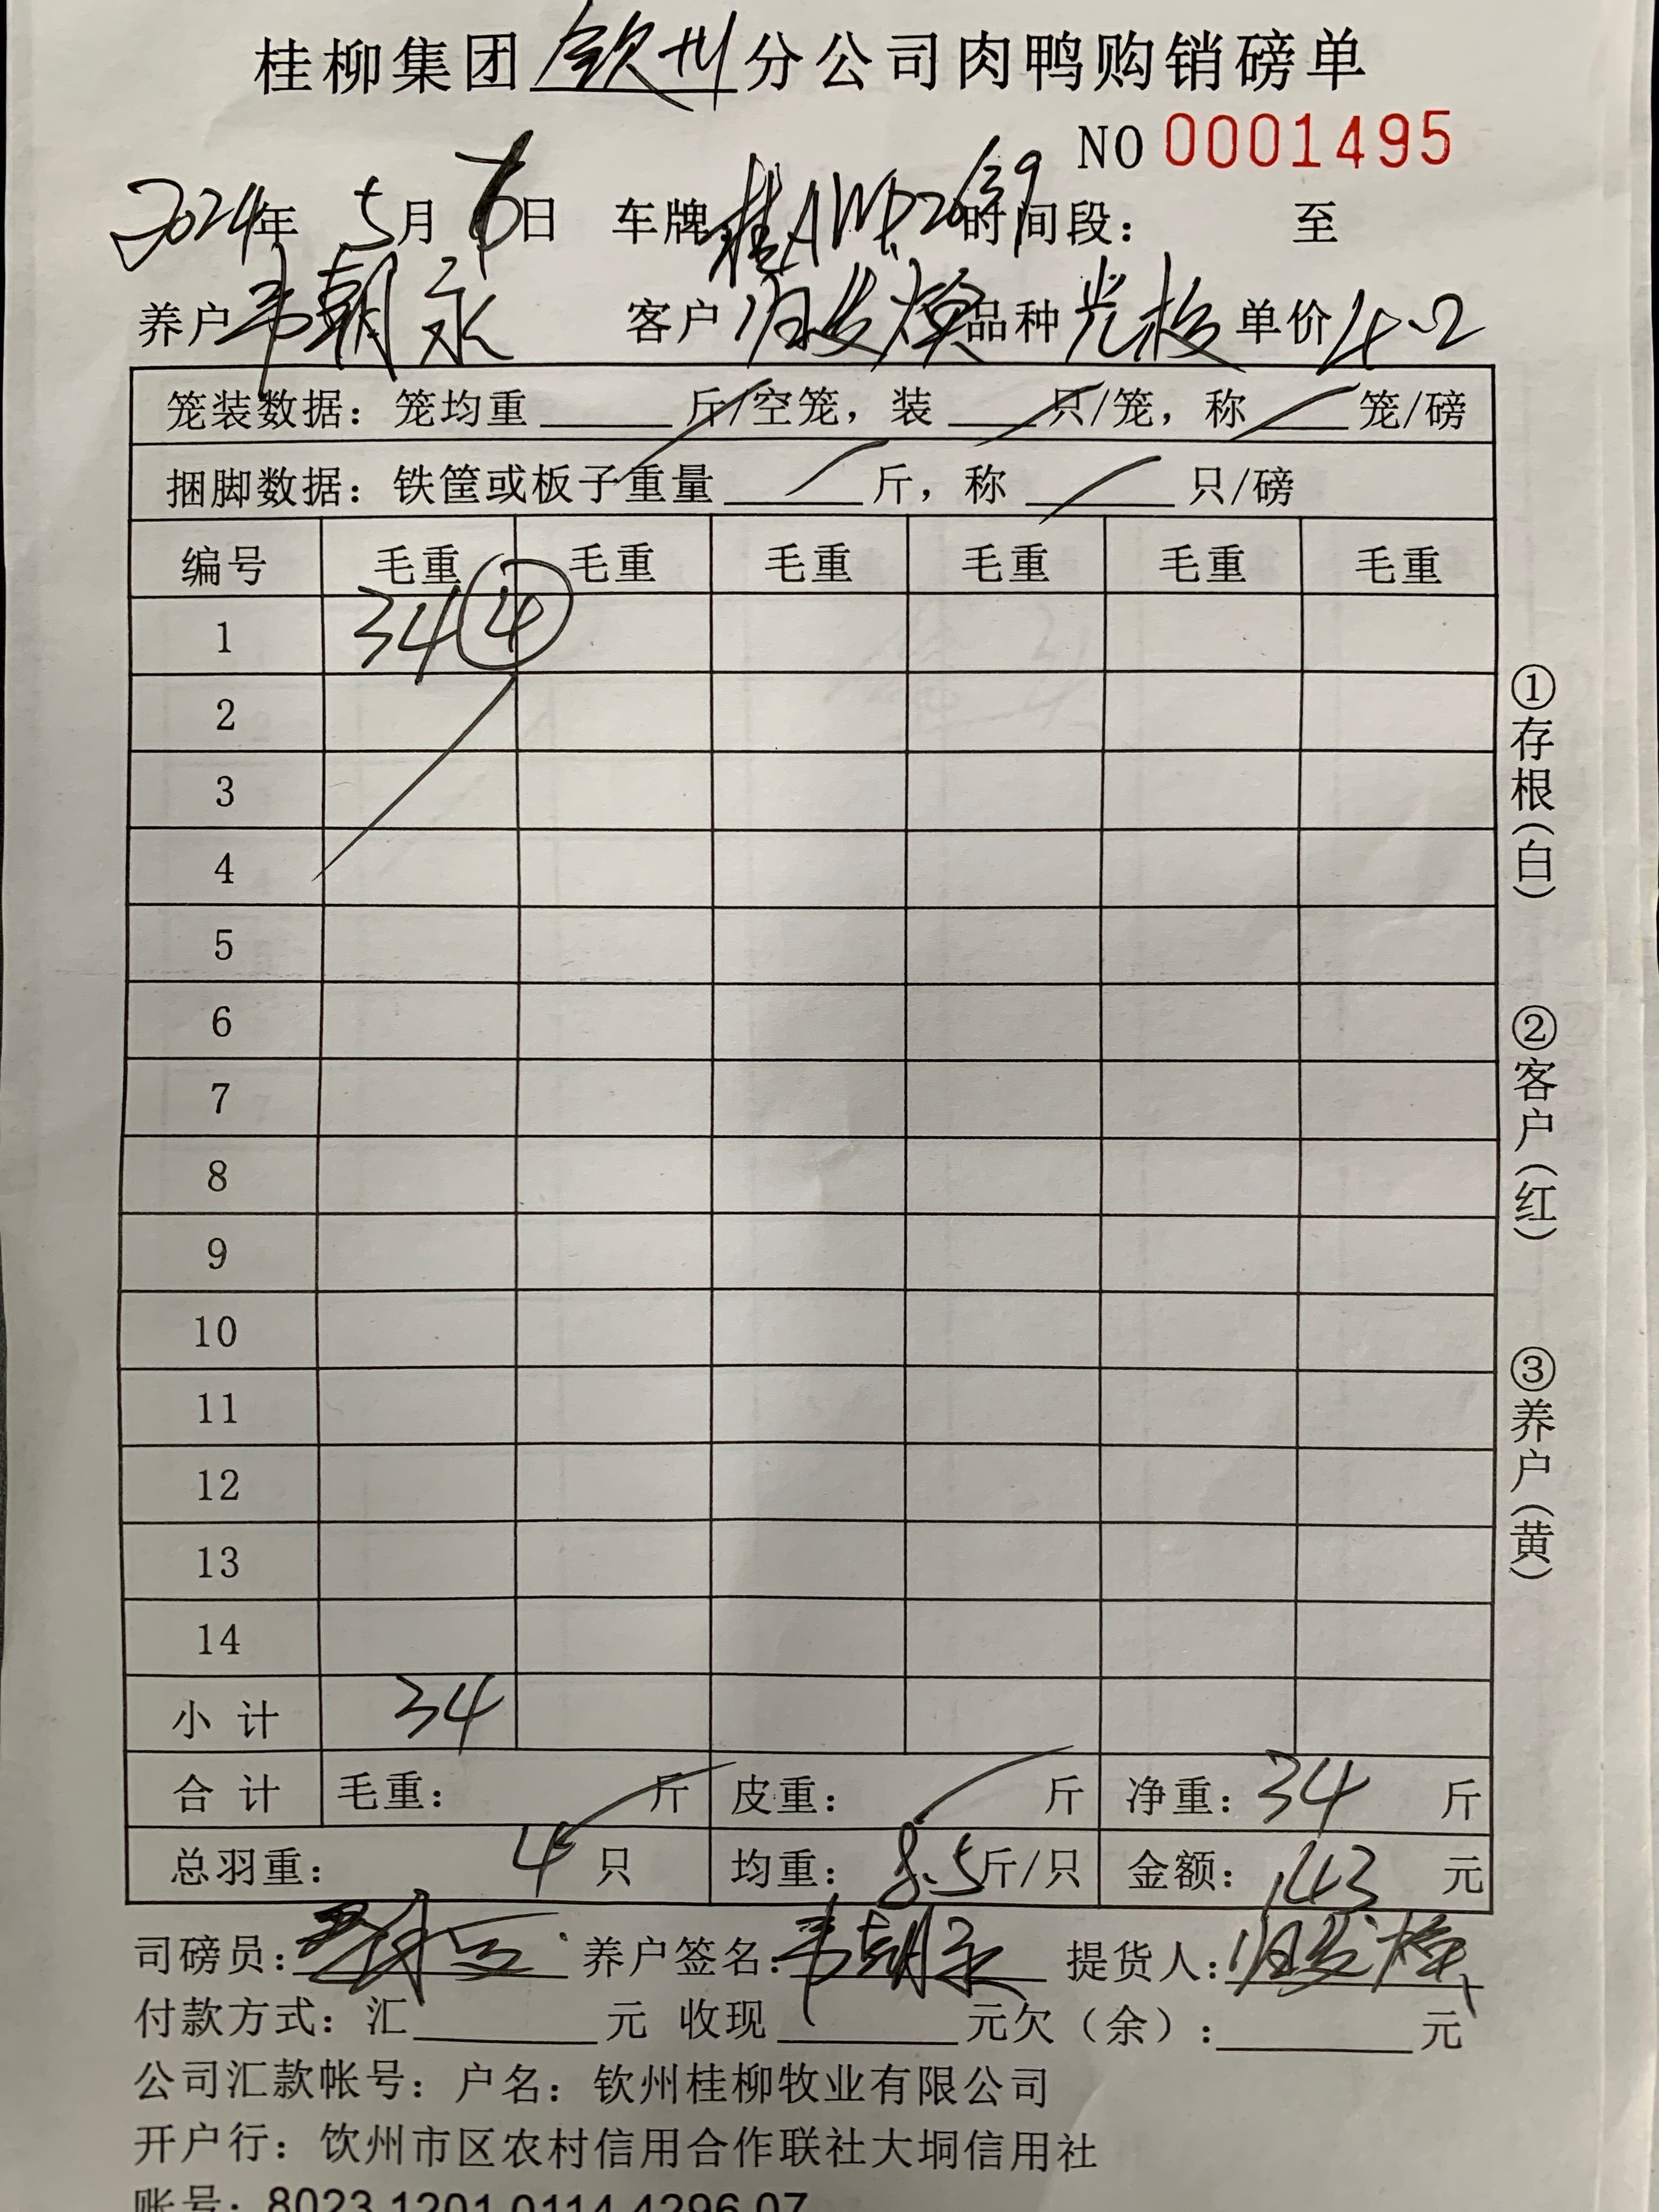 桂柳集团钦州分公司肉鸭购销磅单
NO 0001495
2024年 5月 6日 车牌桂A 时间段： 至
养户韦朝永 客户 品种 单价4.2
笼装数据：笼均重____斤/空笼，装____只/笼，称____笼/磅
捆脚数据：铁筐或板子重量____斤，称____只/磅
编号 毛重 毛重 毛重 毛重 毛重 毛重
1 34 ④
2
3
4
5
6
7
8
9
10
11
12
13
14
小计 34
合计 毛重： 斤 皮重： 斤 净重：34 斤
总羽重： 4 只 均重：8.5斤/只 金额：143 元
司磅员： 养户签名：韦朝永 提货人：
付款方式：汇____元 收现____元欠（余）：____元
公司汇款帐号：户名：钦州桂柳牧业有限公司
开户行：钦州市区农村信用合作联社大垌信用社
账号：8023 1201 0114 4296 07
①存根（白）
②客户（红）
③养户（黄）